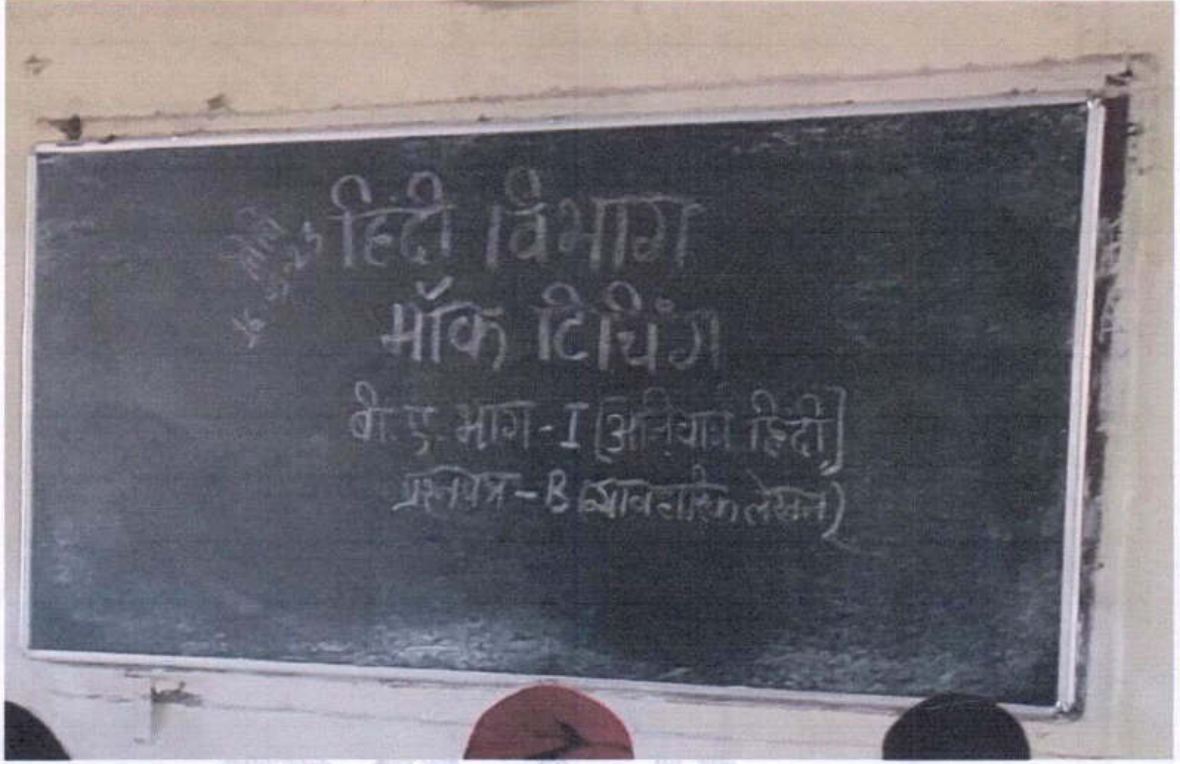 हिंदी विभाग
मॉक टिचिंग
बी. ए. भाग - I [अनिवार्य हिंदी]
प्रश्नपत्र - B (व्यावहारिक लेखन)